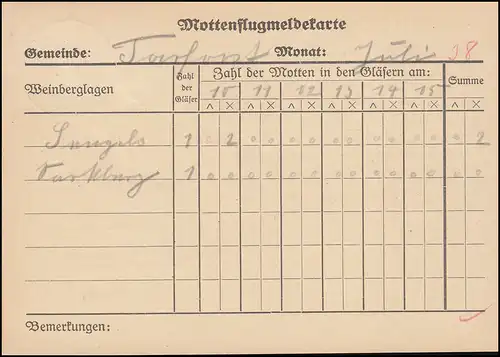 Mottenflugmeldekarte
Gemeinde: Tarforst Monat: Juli 38
Weinberglagen Zahl der Gläser Zahl der Motten in den Gläsern am: Summe
10 11 12 13 14 15
Λ X Λ X Λ X Λ X Λ X Λ X Λ X
1 0 2 0 0 0 0 0 0 0 0 0 0 0 2
1 0 0 0 0 0 0 0 0 0 0 0 0 0 0
Bemerkungen: